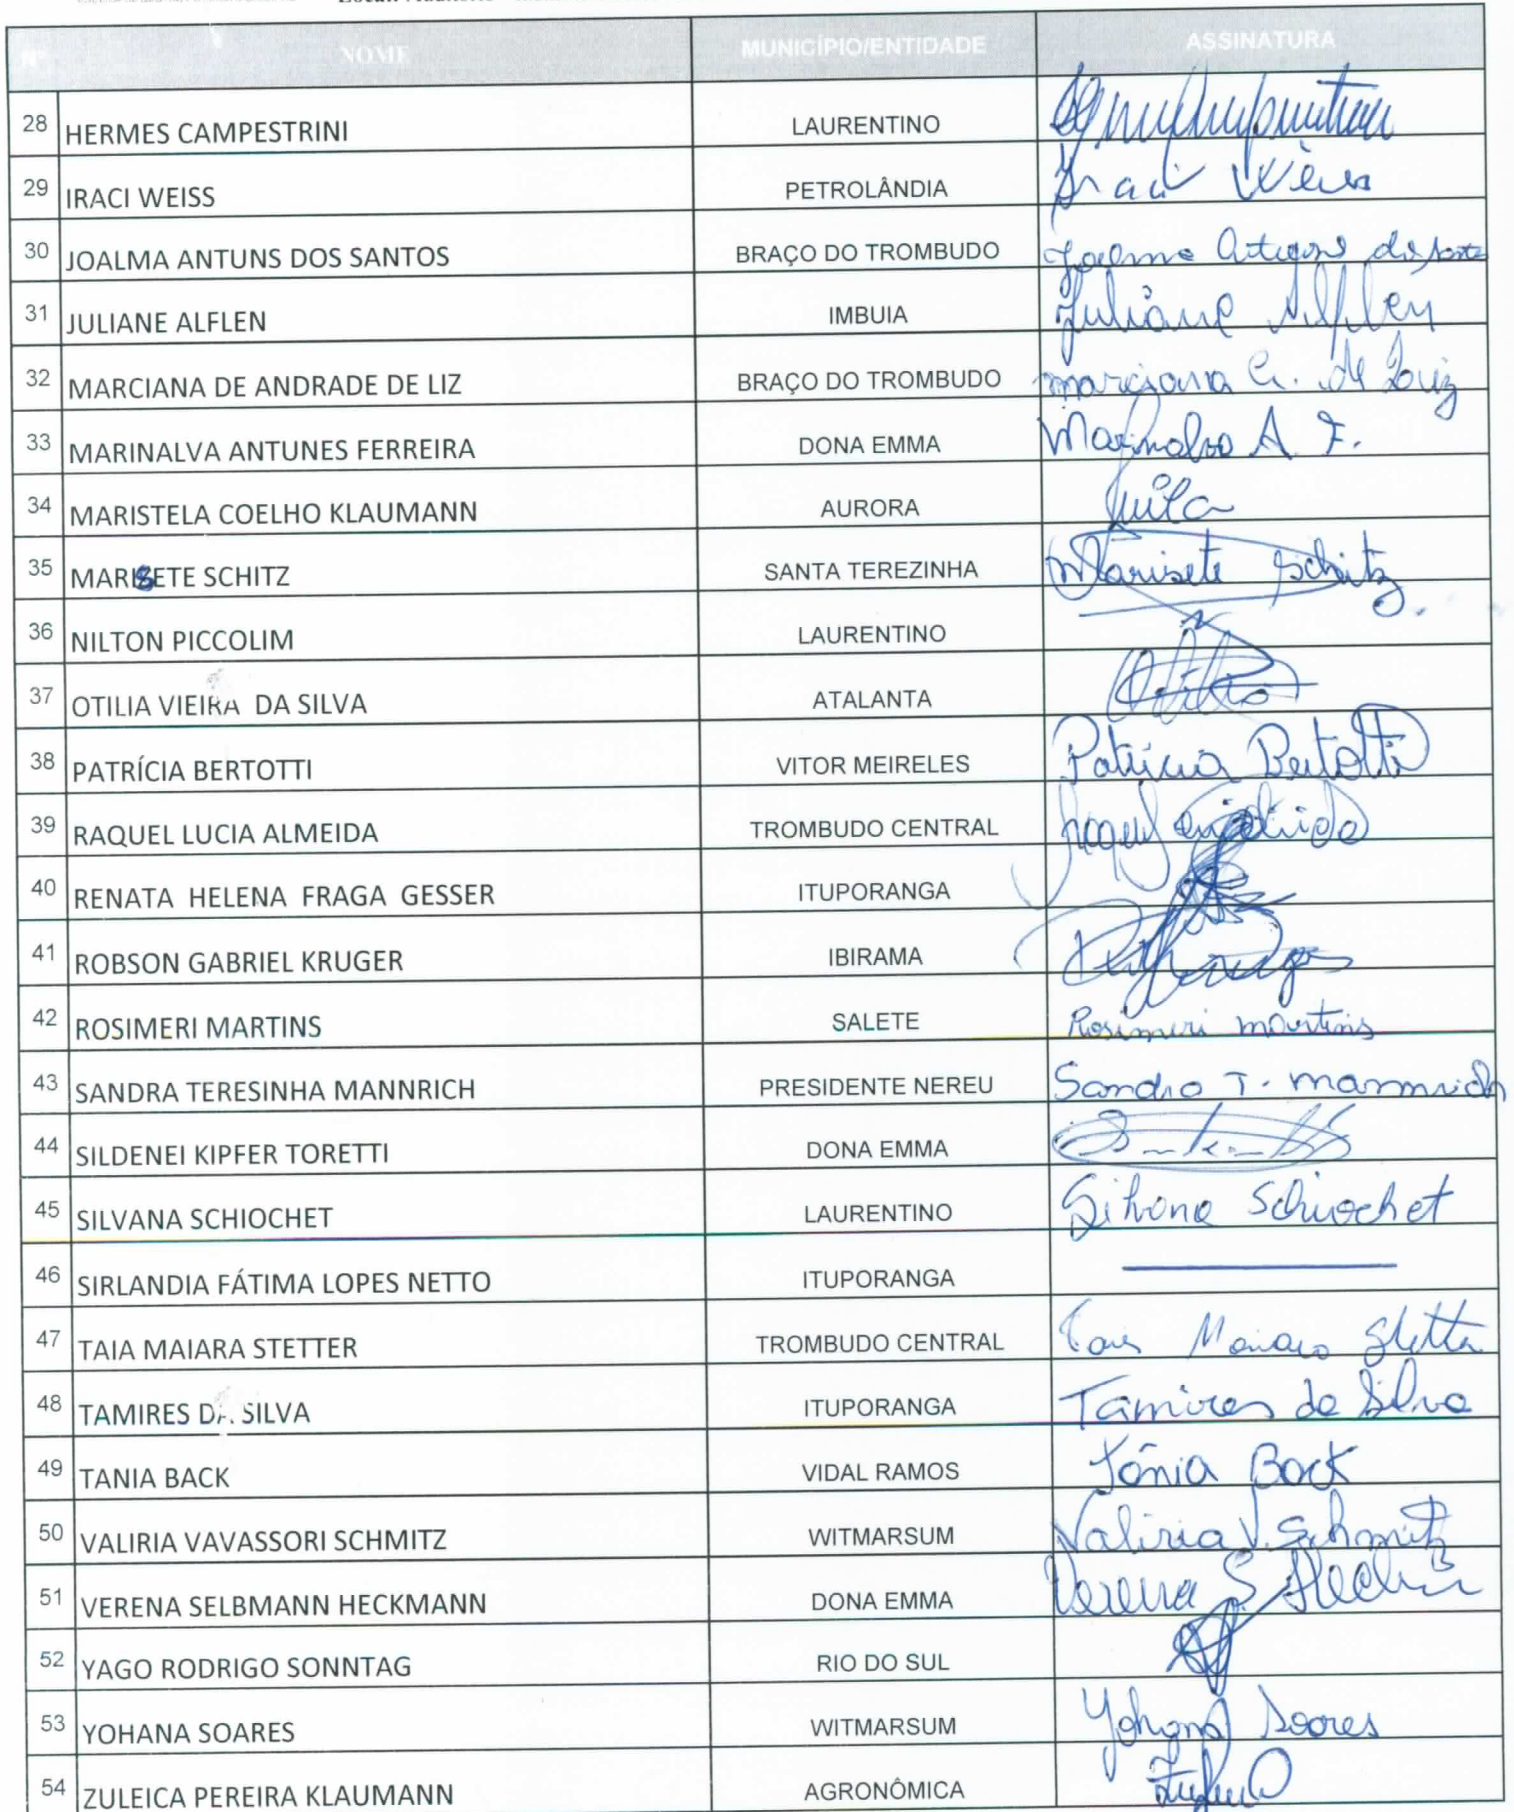 Nº NOME MUNICÍPIO/ENTIDADE ASSINATURA
28 HERMES CAMPESTRINI LAURENTINO
29 IRACI WEISS PETROLÂNDIA Iraci Weiss
30 JOALMA ANTUNS DOS SANTOS BRAÇO DO TROMBUDO
31 JULIANE ALFLEN IMBUIA Juliane Alflen
32 MARCIANA DE ANDRADE DE LIZ BRAÇO DO TROMBUDO marciana a. de Liz
33 MARINALVA ANTUNES FERREIRA DONA EMMA Marinalva A. F.
34 MARISTELA COELHO KLAUMANN AURORA
35 MARISETE SCHITZ SANTA TEREZINHA Marisete Schitz
36 NILTON PICCOLIM LAURENTINO
37 OTILIA VIEIRA DA SILVA ATALANTA
38 PATRÍCIA BERTOTTI VITOR MEIRELES Patrícia Bertotti
39 RAQUEL LUCIA ALMEIDA TROMBUDO CENTRAL
40 RENATA HELENA FRAGA GESSER ITUPORANGA
41 ROBSON GABRIEL KRUGER IBIRAMA
42 ROSIMERI MARTINS SALETE Rosimeri martins
43 SANDRA TERESINHA MANNRICH PRESIDENTE NEREU Sandra T. mannrich
44 SILDENEI KIPFER TORETTI DONA EMMA
45 SILVANA SCHIOCHET LAURENTINO Silvana Schiochet
46 SIRLANDIA FÁTIMA LOPES NETTO ITUPORANGA
47 TAIA MAIARA STETTER TROMBUDO CENTRAL Maiara Stetter
48 TAMIRES DA SILVA ITUPORANGA Tamires da Silva
49 TANIA BACK VIDAL RAMOS Tânia Back
50 VALIRIA VAVASSORI SCHMITZ WITMARSUM Valiria V. Schmitz
51 VERENA SELBMANN HECKMANN DONA EMMA Verena S.
52 YAGO RODRIGO SONNTAG RIO DO SUL
53 YOHANA SOARES WITMARSUM Yohana Soares
54 ZULEICA PEREIRA KLAUMANN AGRONÔMICA